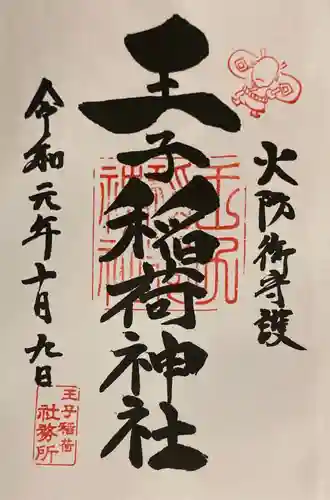 火防御守護
王子稲荷神社
令和元年十月九日
王子稲荷
社務所